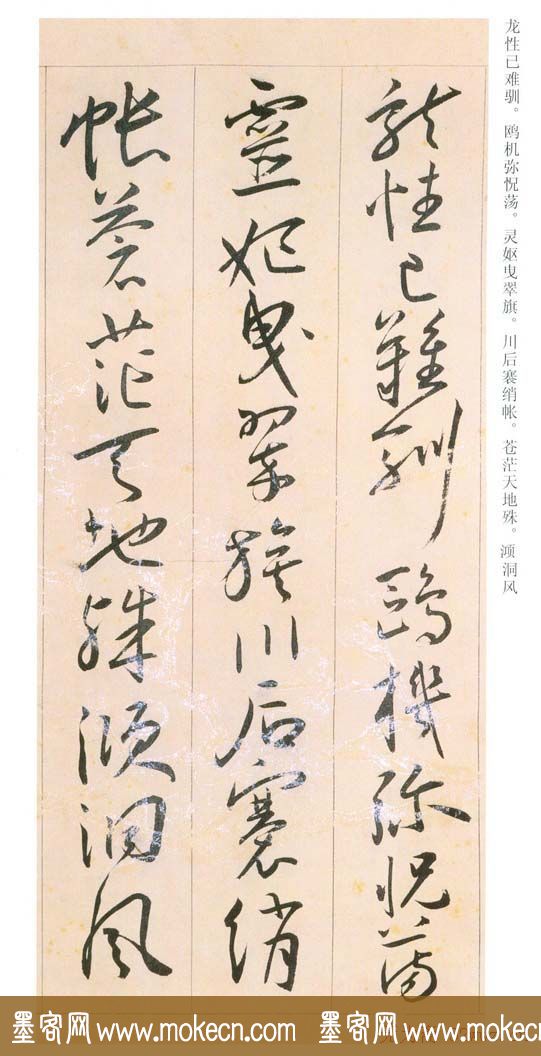 龙性已难驯。鸥机弥怳荡。灵妪曳翠旗。川后褰绡帐。苍茫天地殊。澒洞风
龍性已難馴鷗機弥怳蕩
靈妃曳翠旗川后褰绡
帐蒼茫天地殊澒洞風
墨客网 www.mokecn.com 墨客网 www.mokecn.com